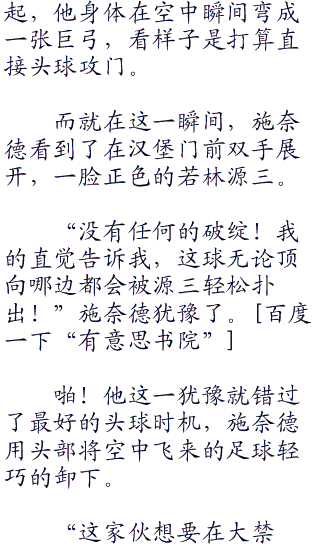 起，他身体在空中瞬间弯成
一张巨弓，看样子是打算直
接头球攻门。
而就在这一瞬间，施奈
德看到了在汉堡门前双手展
开，一脸正色的若林源三。
“没有任何的破绽！我
的直觉告诉我，这球无论顶
向哪边都会被源三轻松扑
出！”施奈德犹豫了。[百度
一下“有意思书院”]
啪！他这一犹豫就错过
了最好的头球时机，施奈德
用头部将空中飞来的足球轻
巧的卸下。
“这家伙想要在大禁